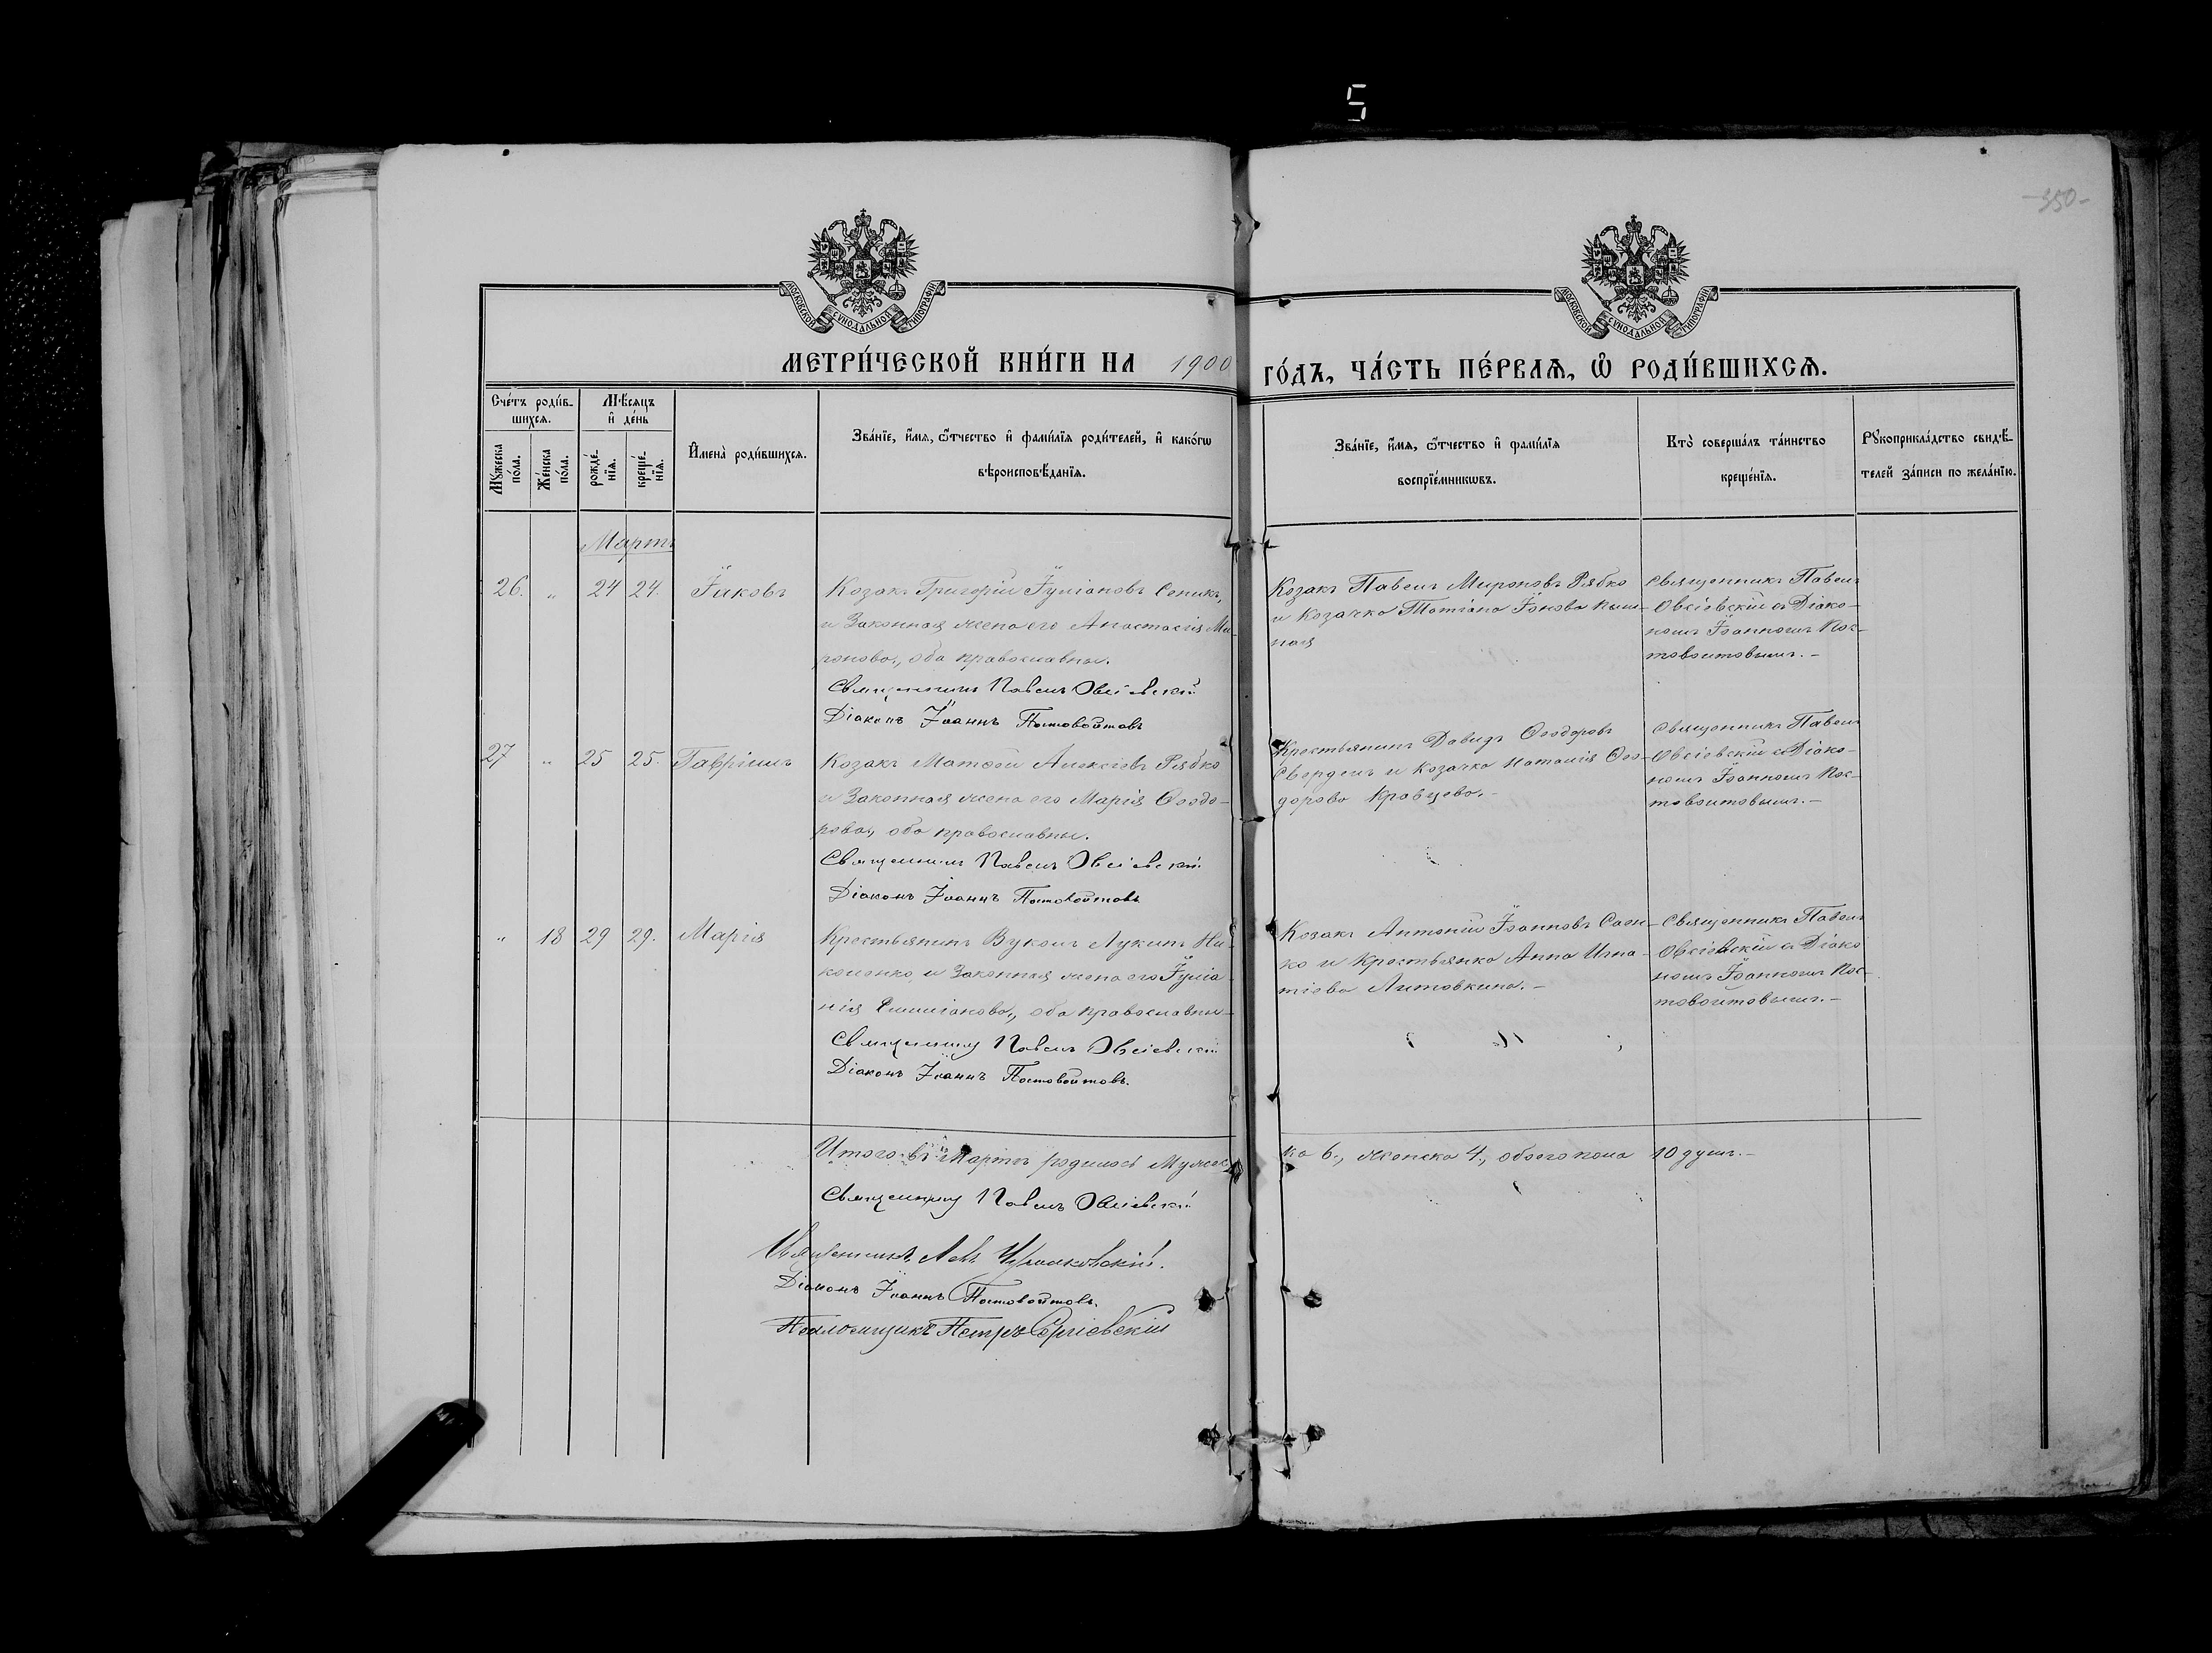 5
350
МОСКОВСКОЙ СУНОДАЛЬНОЙ ТИПОГРАФІИ
МОСКОВСКОЙ СУНОДАЛЬНОЙ ТИПОГРАФІИ
МЕТРИ́ЧЕСКОЙ КНИ́ГИ НА 1900 ГО́ДЪ, ЧА́СТЬ ПЕ́РВАѦ, Ѽ РОДИ́ВШИХСѦ.
Сче́тъ роди́в-
шихсѧ.
Мꙋжеска по́ла.
Же́нска по́ла.
Мѣсѧцъ
и҆ де́нь
рожде́-
нїѧ.
креще́-
нїѧ.
И҆мена̀ роди́вшихсѧ.
Зва́нїе, и҆́мѧ, ѻ҆́тчество и҆ фами́лїѧ роди́телей, и҆ како́гѡ
вѣроисповѣ́данїѧ.
Зва́нїе, и҆́мѧ, ѻ҆́тчество и҆ фами́лїѧ
воспрїе́мникѡвъ.
Кто̀ соверша́лъ та́инство
креще́нїѧ.
Рꙋкоприкла́дство свидѣ́-
телей за́писи по жела́нїю.
Мартъ
26. „ 24 24. Іаковъ
Козакъ Григорій Іуліановъ Сеникъ,
и Законная жена его Анастасія Ми-
ронова, оба православны.
Священникъ Павелъ Овсіевскій
Діаконъ Іоаннъ Постовойтовъ
Козакъ Павелъ Мироновъ Рябко
и Козачка Татіана Іонова
ная
Священникъ Павелъ
Овсіевскій съ Діако-
номъ Іоанномъ Пос-
товойтовымъ.-
27 „ 25 25. Гавріилъ
Козакъ Матѳей Алексіевъ Рябко
и Законная жена его Марія Ѳеодо-
рова, оба православны.
Священникъ Павелъ Овсіевскій
Діаконъ Іоаннъ Постовойтовъ
Крестьянинъ Давидъ Ѳеодоровъ
Свердель и Козачка Наталія Ѳео-
дорова Кравцева.-
Священникъ Павелъ
Овсіевскій съ Діако-
номъ Іоанномъ Пос-
товойтовымъ.-
„ 18 29 29. Марія
Крестьянинъ Вуколъ Лукинъ Ни-
коленко, и Законная жена его Іуліа-
нія Емиліанова, оба православны-
Священникъ Павелъ Овсіевскій
Діаконъ Іоаннъ Постовойтовъ.
Козакъ Антоній Іоанновъ Саен-
ко и Крестьянка Анна Игна-
тіева Литовкина.-
Священникъ Павелъ
Овсіевскій съ Діако
номъ Іоанномъ Пос-
товойтовымъ.-
Итого въ Мартѣ родилось Мужес-
ка 6., женска 4., обоего пола 10 душъ.-
Священникъ Павелъ Овсіевскій
Священникъ Левъ
Діаконъ Іоаннъ Постовойтовъ.
Псаломщикъ Петръ Сергіевскій